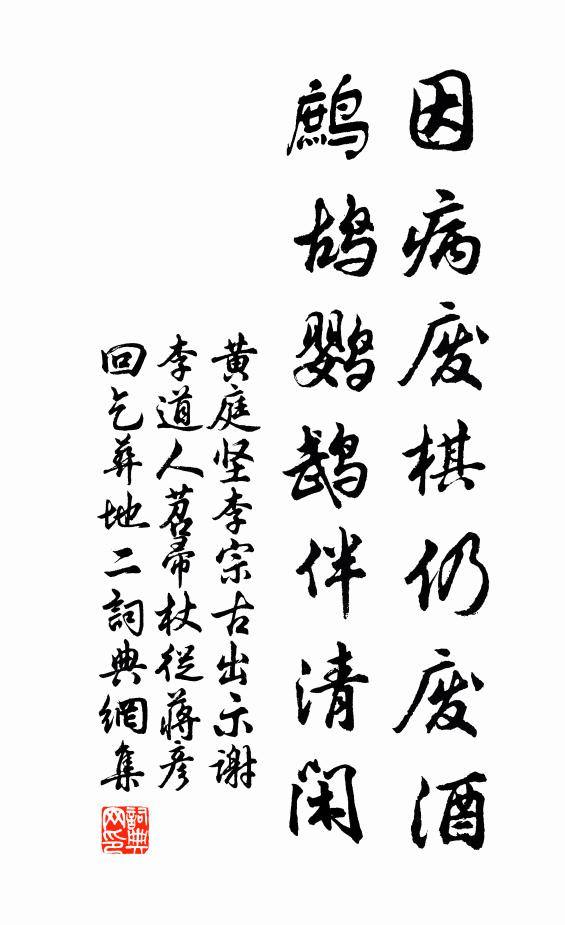 因病废棋仍废酒
鹧鸪鹦鹉伴清闲
黄庭坚李宗古出示谢
李道人苕帚杖從蒋彦
回乞葬地二詞典網集
詞典网印